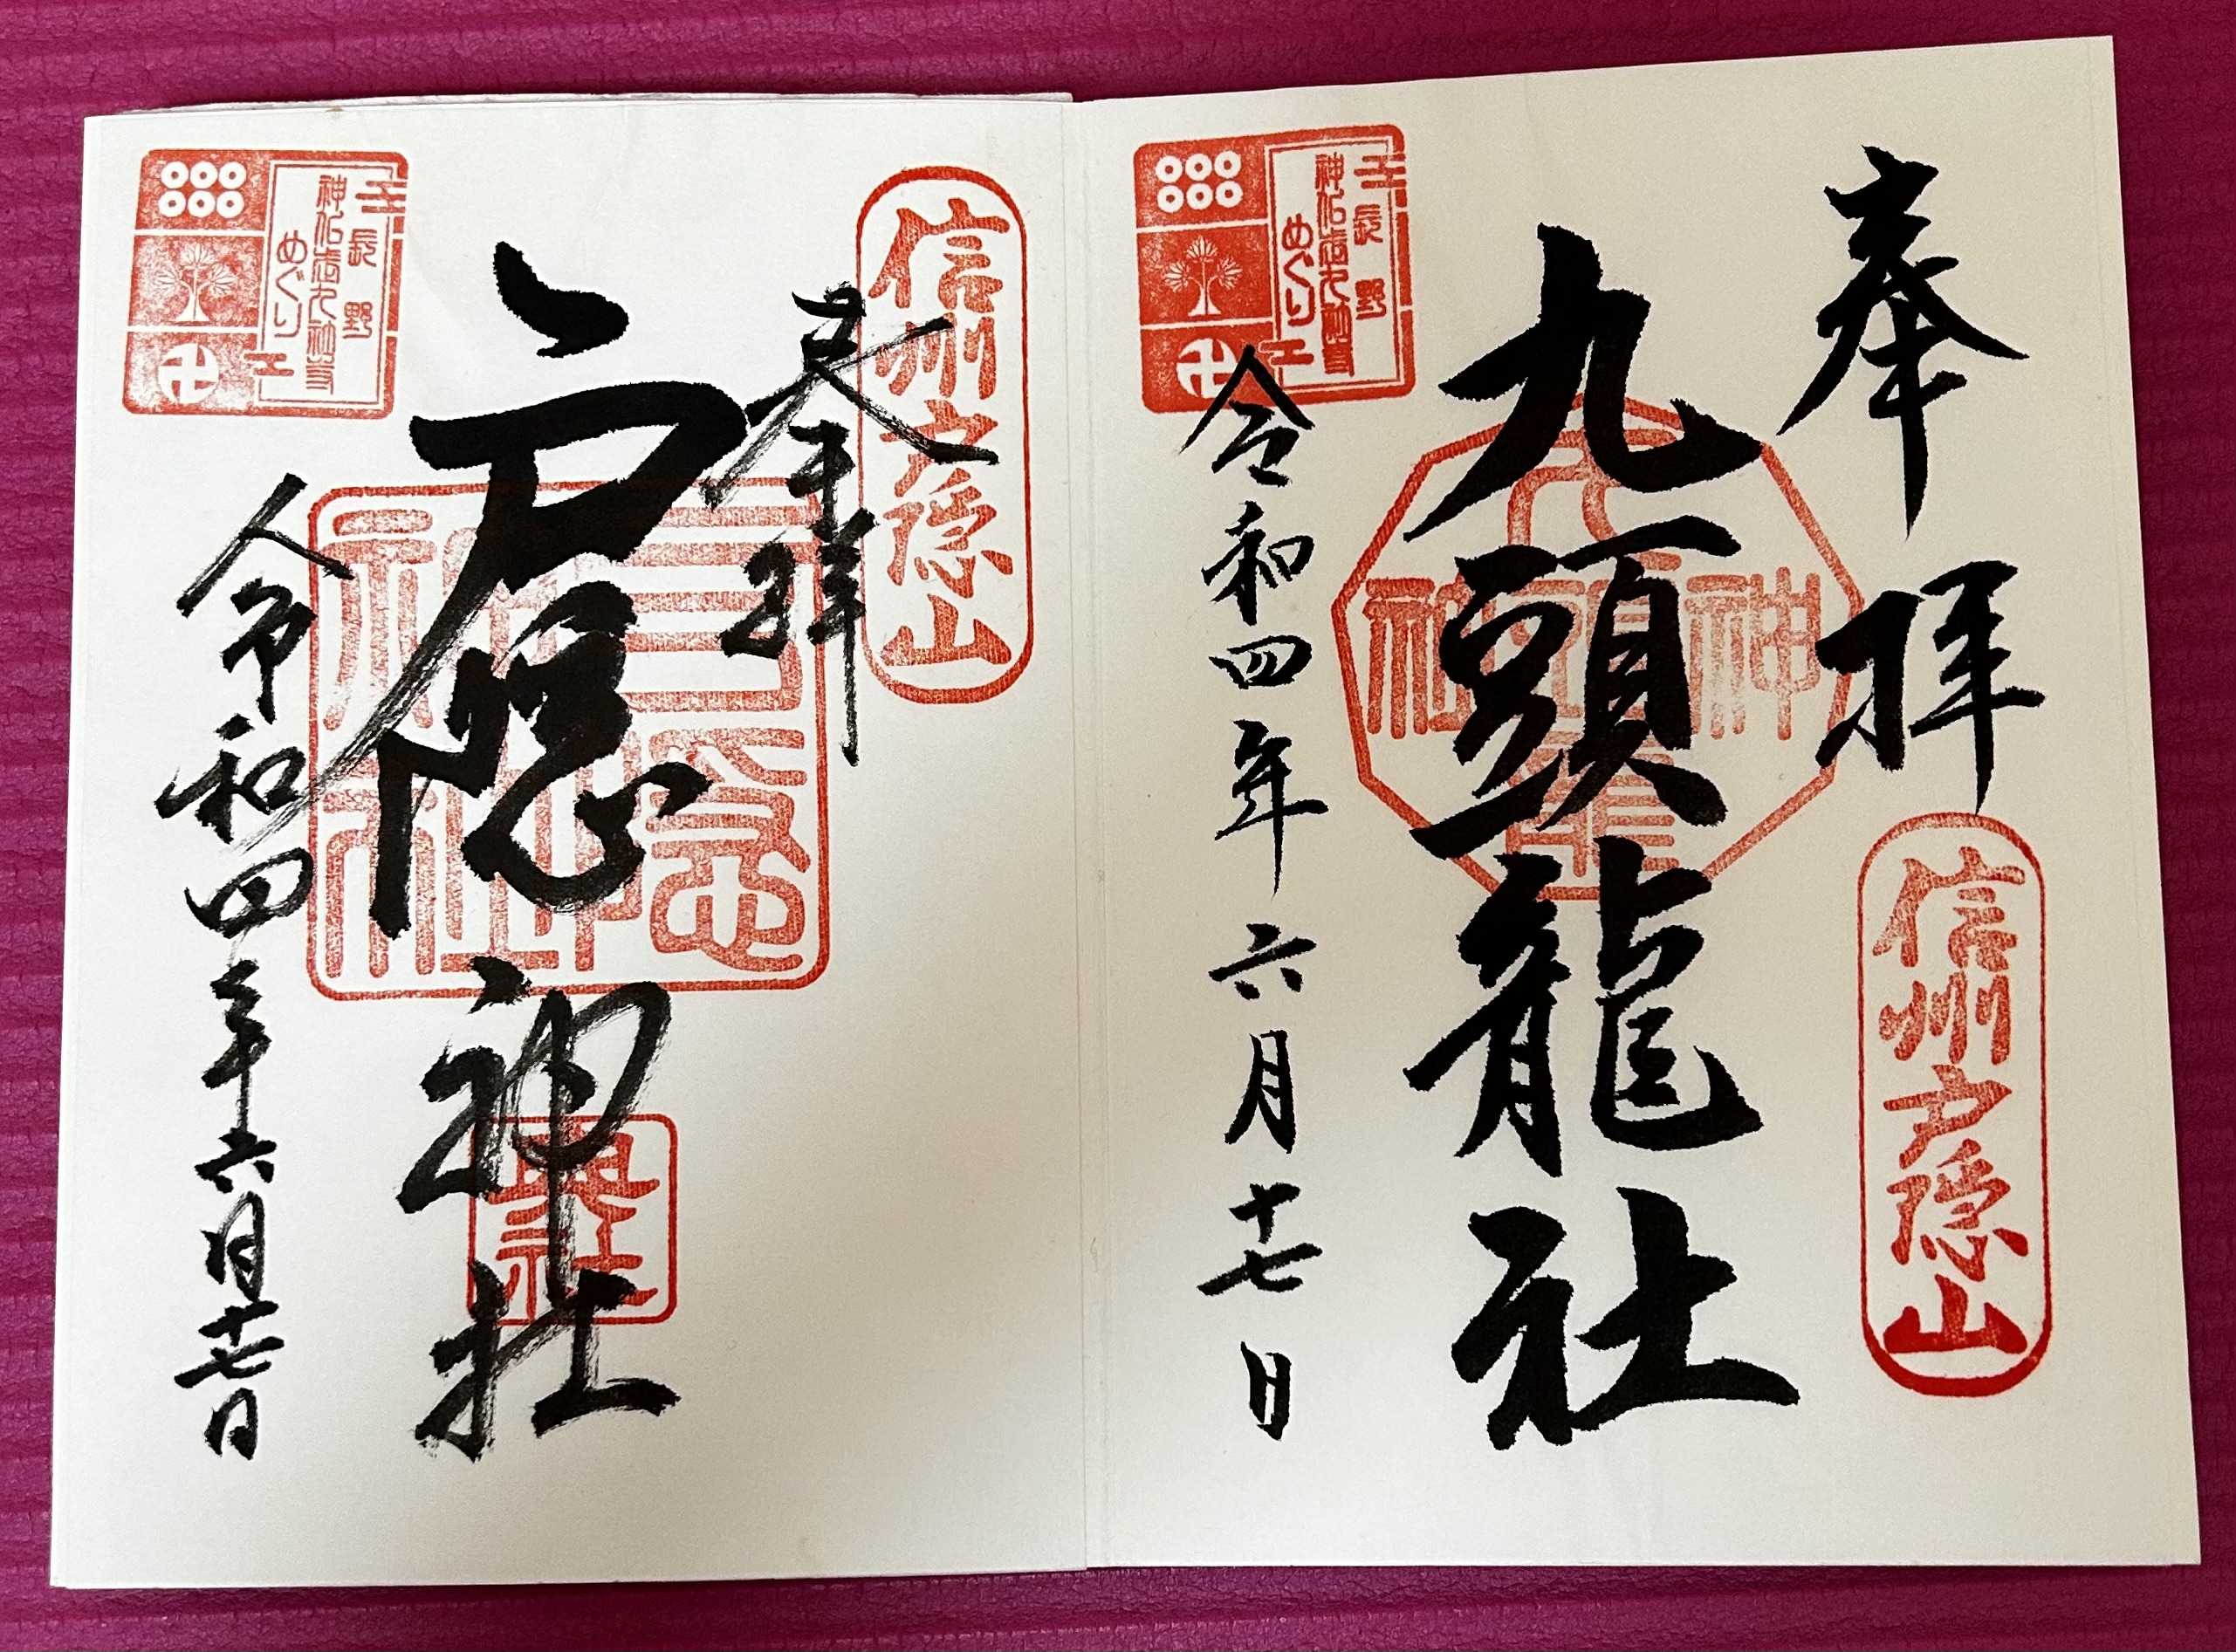 奉拝
信州戸隠山
九頭龍社
九頭龍神社
令和四年六月十七日
長野
神仏
めぐり
信州戸隠山
奉拝
戸隠神社
戸隠神社
奥社
令和四年六月十七日
長野
神仏
めぐり